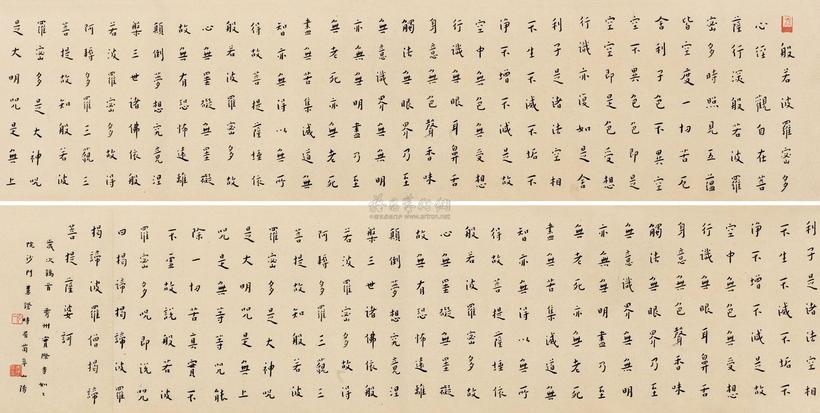 般若波羅密多
心經觀自在菩
薩行深般若波羅
密多時照見五蘊
皆空度一切苦厄
舍利子色不異空
空不異色色即是
空空即是色受想
行識亦復如是舍
利子是諸法空相
不生不滅不垢不
淨不增不減是故
空中無色無受想
行識無眼耳鼻舌
身意無色聲香味
觸法無眼界乃至
無意識界無無明
亦無無明盡乃至
無老死亦無老死
盡無苦集滅道無
智亦無得以無所
得故菩提薩埵依
般若波羅密多故
心無罣礙無罣礙
故無有恐怖遠離
顛倒夢想究竟涅
槃三世諸佛依般
若波羅密多故得
阿耨多羅三藐三
菩提故知般若波
羅密多是大神咒
是大明咒是無上
利子是諸法空相
不生不滅不垢不
淨不增不減是故
空中無色無受想
行識無眼耳鼻舌
身意無色聲香味
觸法無眼界乃至
無意識界無無明
亦無無明盡乃至
無老死亦無老死
盡無苦集滅道無
智亦無得以無所
得故菩提薩埵依
般若波羅密多故
心無罣礙無罣礙
故無有恐怖遠離
顛倒夢想究竟涅
槃三世諸佛依般
若波羅密多故得
阿耨多羅三藐三
菩提故知般若波
羅密多是大神咒
是大明咒是無上
咒是無等等咒能
除一切苦真實
不虛故說般若波
羅密多咒即說咒
曰揭諦揭諦波羅
揭諦波羅僧揭諦
菩提薩婆訶
歲次鶉首
院沙門
雅昌藝術網
www.artron.net